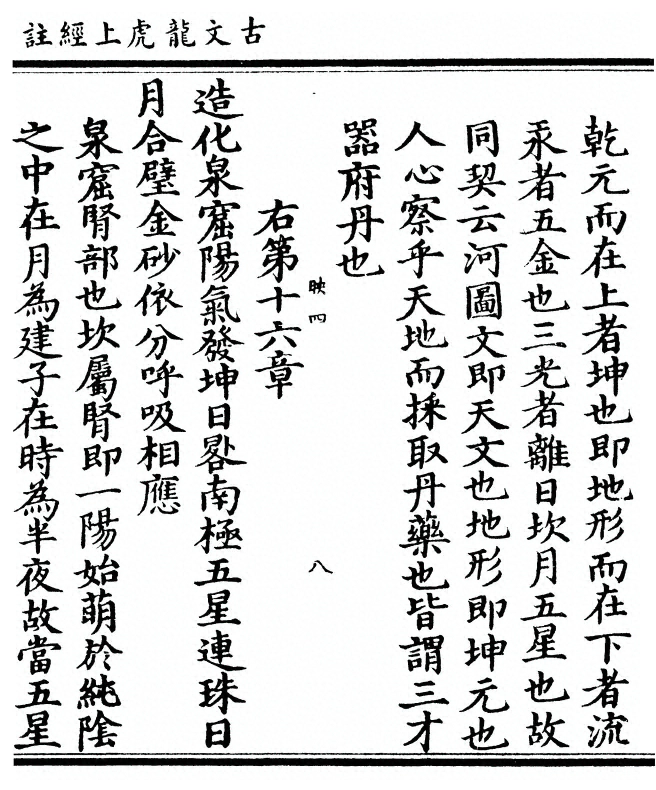 古文龍虎上經註
乾元而在上者坤也即地形而在下者流
汞者五金也三光者離日坎月五星也故
同契云河圖文即天文也地形即坤元也
人心察乎天地而採取丹藥也皆謂三才
器府丹也
右第十六章
映四
八
造化泉窟陽氣發坤日晷南極五星連珠日
月合璧金砂依分呼吸相應
泉窟腎部也坎屬腎即一陽始萌於純陰
之中在月為建子在時為半夜故當五星